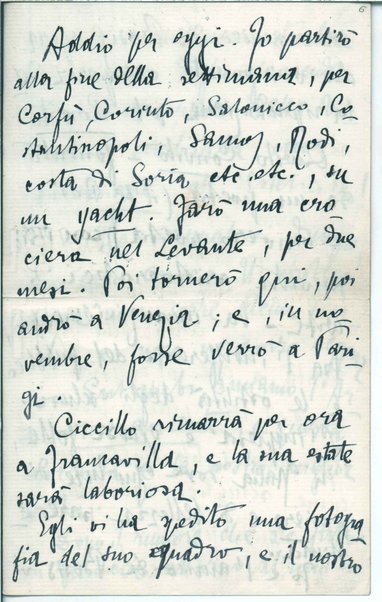 6
Addio per oggi. Io partirò
alla fine della settimana, per
Corfù, Corinto, Salonicco, Co
stantinopoli, Samos, Rodi,
costa di Soria etc. etc., su
un yacht. Farò una cro
ciera nel Levante, per due
mesi. Poi tornerò qui, poi
andrò a Venezia; e, in no
vembre, forse verrò a Pari
gi.
Ciccillo rimarrà per ora
a Francavilla, e la sua estate
sarà laboriosa.
Egli vi ha spedito una fotogra
fia del suo quadro, e il nostro